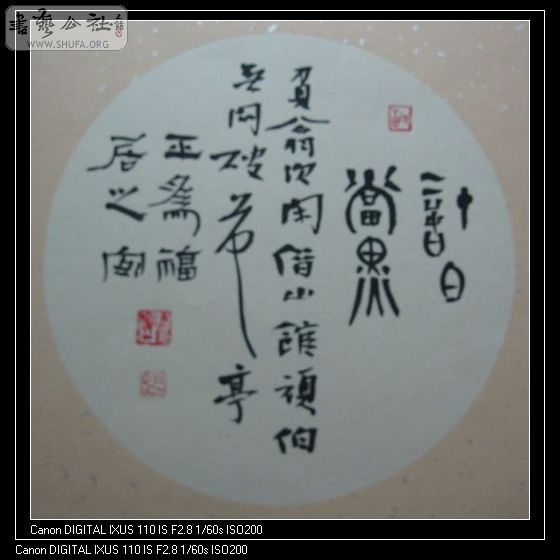 書藝公社
WWW.SHUFA.ORG
計白
當黑
翁次閑借山館頑伯
無悶破荷亭
正爲福
居之安
Canon DIGITAL IXUS 110 IS F2.8 1/60s ISO200
Canon DIGITAL IXUS 110 IS F2.8 1/60s ISO200